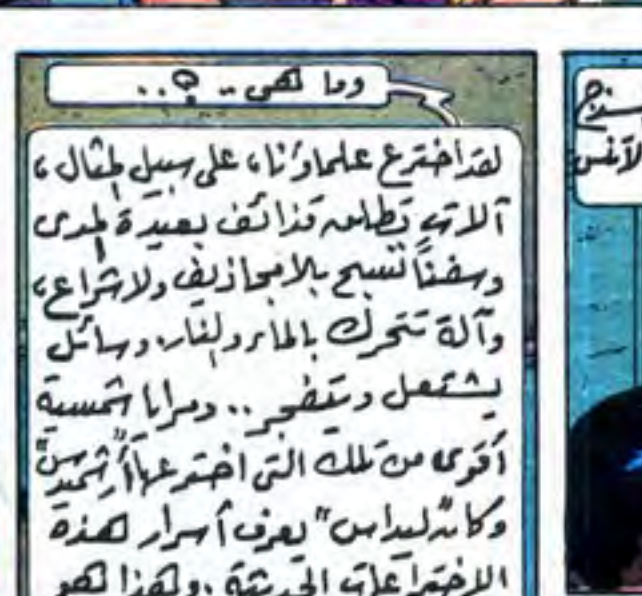 وما هى .. ؟..
لقد أخترع علماؤنا، على سبيل المثال،
آلات تطلق قذائف بعيدة المدى
وسفناً تسبح بلا مجاذيف ولا شراع،
وآلة تتحرك بالماء والنار، وسائل
يشتعل ويتفجر .. ومرايا شمسية
أقوى من تلك التى اخترعها "أرشميدس"
وكان "ليداس" يعرف أسرار هذه
الاختراعات الحديثة . ولهذا هو